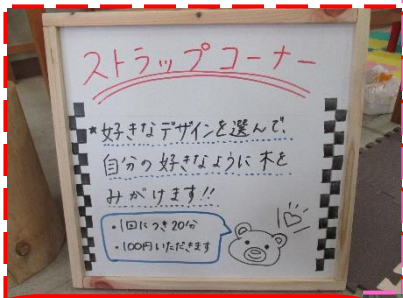 ストラップコーナー
★好きなデザインを選んで、
自分の好きなように木を
みがけます!!
・1回につき20分
・100円いただきます